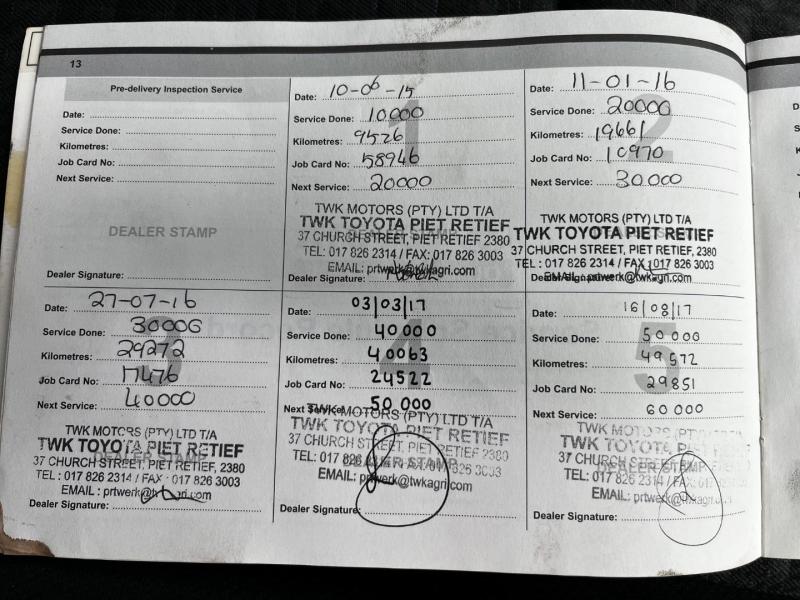 13
Pre-delivery Inspection Service
Date:
Service Done:
Kilometres:
Job Card No:
Next Service:
DEALER STAMP
Dealer Signature:
1
Date: 10-06-15
Service Done: 10000
Kilometres: 9526
Job Card No: 58946
Next Service: 20000
TWK MOTORS (PTY) LTD T/A
TWK TOYOTA PIET RETIEF
37 CHURCH STREET, PIET RETIEF 2380
TEL: 017 826 2314 / FAX: 017 826 3003
EMAIL: prtwerk@twkagri.com
Dealer Signature:
2
Date: 11-01-16
Service Done: 20000
Kilometres: 19661
Job Card No: 10970
Next Service: 30000
TWK MOTORS (PTY) LTD T/A
TWK TOYOTA PIET RETIEF
37 CHURCH STREET, PIET RETIEF, 2380
TEL: 017 826 2314 / FAX 017 826 3003
EMAIL: prtwerk@twkagri.com
Dealer Signature:
3
Date: 27-07-16
Service Done: 30000
Kilometres: 29272
Job Card No: 17476
Next Service: 40000
TWK MOTORS (PTY) LTD T/A
TWK TOYOTA PIET RETIEF
DEALER STAMP
37 CHURCH STREET, PIET RETIEF, 2380
TEL: 017 826 2314 / FAX: 017 826 3003
EMAIL: prtwerk@twkagri.com
Dealer Signature:
4
Date: 03/03/17
Service Done: 40000
Kilometres: 40063
Job Card No: 24522
Next Service: 50 000
TWK MOTORS (PTY) LTD T/A
TWK TOYOTA PIET RETIEF
37 CHURCH STREET, PIET RETIEF 2380
DEALER STAMP
TEL: 017 826 3003
EMAIL: prtwerk@twkagri.com
Dealer Signature:
5
Date: 16/08/17
Service Done: 50 000
Kilometres: 49572
Job Card No: 29851
Next Service: 60 000
TWK MOTORS (PTY)
TWK TOYOTA PIET
37 CHURCH STREET, PIET
DEALER STAMP
TEL: 017 826 2314 / FAX: 017
EMAIL: prtwerk@twkagri
Dealer Signature: